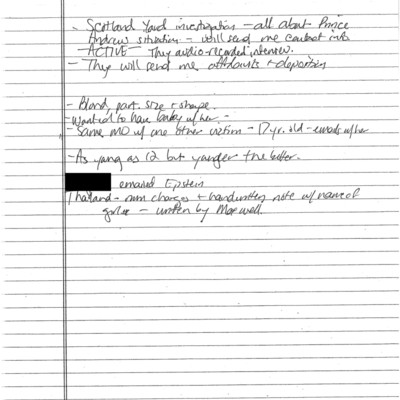 - Scotland Yard investigation - all about Prince
Andrew situation - will send me contact info
- ACTIVE - They audio-recorded interview.
- They will send me affidavits + deposition
- Blond, part. size + shape.
- Wanted to have baby w/ her. -
- Same MO w/ one other victim - 17 yr. old - emails w/ her
- As young as 12 but younger the better.
emailed Epstein
Thailand - charges + handwritten note w/ name of
- written by Maxwell.